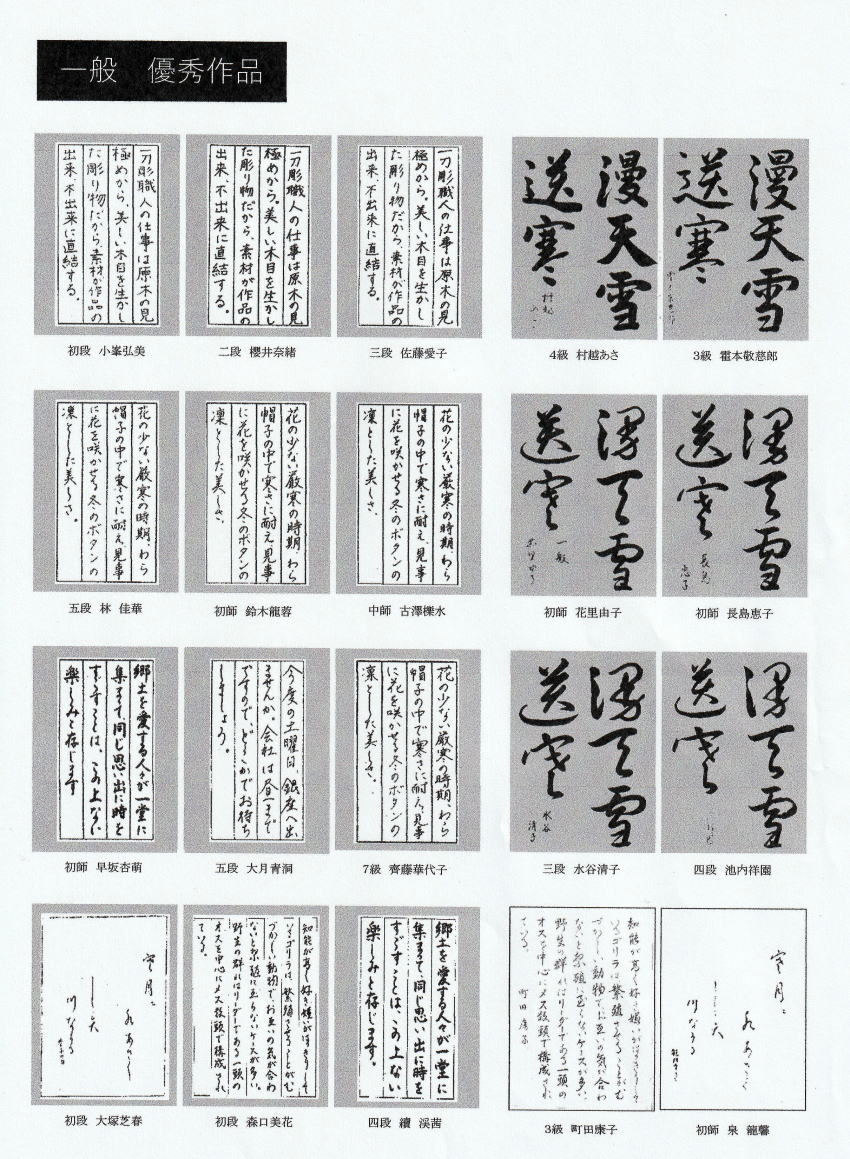 一般　優秀作品
一刀彫職人の仕事は原木の見
極めから。美しい木目を生かし
た彫り物だから、素材が作品の
出来、不出来に直結する。
初段 小峯弘美
一刀彫職人の仕事は原木の見
極めから。美しい木目を生かし
た彫り物だから、素材が作品の
出来、不出来に直結する。
二段 櫻井奈緒
一刀彫職人の仕事は原木の見
極めから。美しい木目を生かし
た彫り物だから、素材が作品の
出来、不出来に直結する。
三段 佐藤愛子
漫天雪
送寒
村越
4級 村越あさ
漫天雪
送寒
3級 霍本敬慈郎
花の少ない厳寒の時期、わら
帽子の中で寒さに耐え、見事
に花を咲かせる冬のボタンの
凜とした美しさ。
五段 林 佳華
花の少ない厳寒の時期、わら
帽子の中で寒さに耐え、見事
に花を咲かせる冬のボタンの
凜とした美しさ。
初師 鈴木龍蓉
花の少ない厳寒の時期、わら
帽子の中で寒さに耐え、見事
に花を咲かせる冬のボタンの
凜とした美しさ。
中師 古澤櫟水
漫天雪
送寒
一般
初師 花里由子
漫天雪
送寒
長島
恵子
初師 長島恵子
郷土を愛する人々が一堂に
集まって、同じ思い出に時を
すごすことは、この上ない
楽しみと存じます
初師 早坂杏萌
今度の土曜日、銀座へ出
ませんか。会社は昼まで
ですので、どこかでお待ち
しましょう。
五段 大月青洞
花の少ない厳寒の時期、わら
帽子の中で寒さに耐え、見事
に花を咲かせる冬のボタンの
凜とした美しさ。
7級 齊藤華代子
漫天雪
送寒
水谷
清子
三段 水谷清子
漫天雪
送寒
四段 池内祥園
寒月に
川なりける
初段 大塚芝春
知能が高く好き嫌いがはっきりして
いるゴリラは、繁殖させることがむ
づかしい動物で、お互いの気が合わ
ないと繁殖に至らないケースが多い。
野生の群れはリーダーである一頭の
オスを中心にメス数頭で構成され
ている。
初段 森口美花
郷土を愛する人々が一堂に
集まって、同じ思い出に時を
すごすことは、この上ない
楽しみと存じます。
四段 續 渓茜
知能が高く好き嫌いがはっきりして
いるゴリラは、繁殖させることがむ
づかしい動物で、お互いの気が合わ
ないと繁殖に至らないケースが多い。
野生の群れはリーダーである一頭の
オスを中心にメス数頭で構成され
ている。
町田康子
3級 町田康子
寒月に
川なりける
初師 泉 龍馨